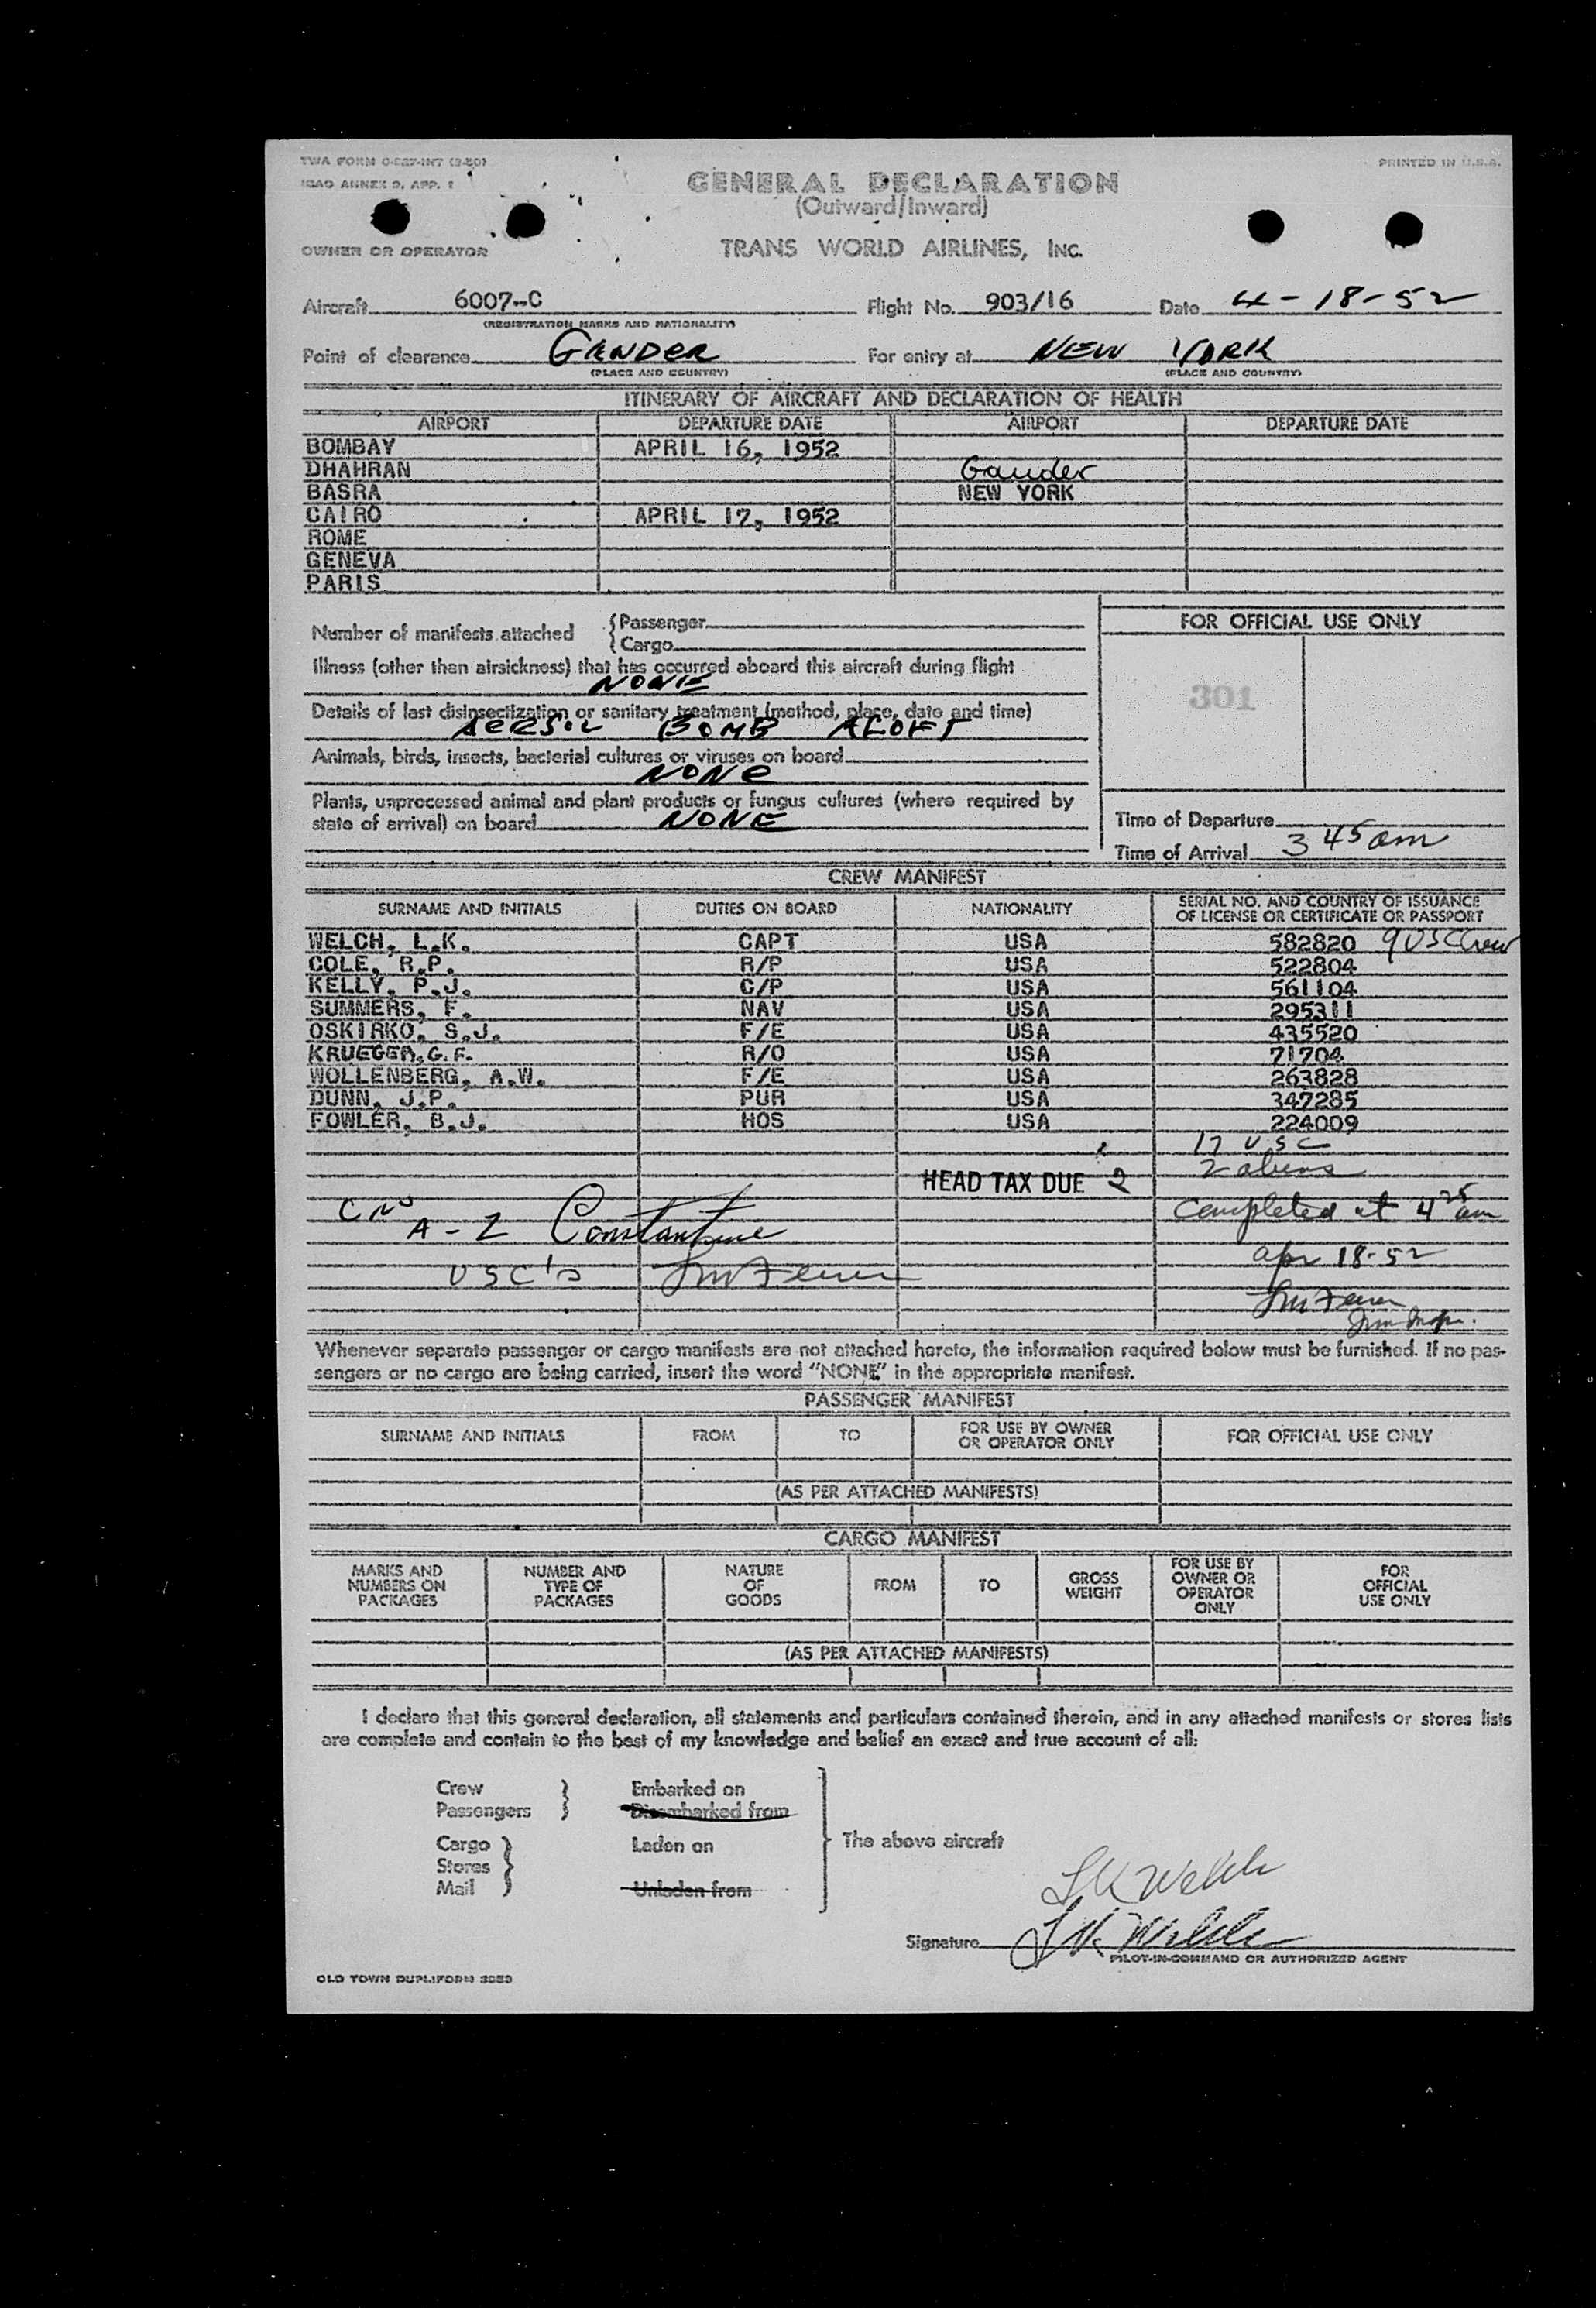 TWA FORM O-827-INT (3-50)
PRINTED IN U.S.A.
ICAO ANNEX 9, APP. 1
GENERAL DECLARATION
(Outward/Inward)
OWNER OR OPERATOR
TRANS WORLD AIRLINES, INC.
Aircraft 6007-C Flight No. 903/16 Date 4-18-52
(REGISTRATION MARKS AND NATIONALITY)
Point of clearance GANDER For entry at NEW YORK
(PLACE AND COUNTRY) (PLACE AND COUNTRY)
ITINERARY OF AIRCRAFT AND DECLARATION OF HEALTH
AIRPORT DEPARTURE DATE AIRPORT DEPARTURE DATE
BOMBAY APRIL 16, 1952
DHAHRAN Gander
BASRA NEW YORK
CAIRO APRIL 17, 1952
ROME
GENEVA
PARIS
Number of manifests attached { Passenger
Cargo
FOR OFFICIAL USE ONLY
Illness (other than airsickness) that has occurred aboard this aircraft during flight
NONE
301
Details of last disinsectization or sanitary treatment (method, place, date and time)
AERSOL BOMB ALOFT
Animals, birds, insects, bacterial cultures or viruses on board
NONE
Plants, unprocessed animal and plant products or fungus cultures (where required by
state of arrival) on board NONE
Time of Departure
Time of Arrival 3 45 am
CREW MANIFEST
SURNAME AND INITIALS DUTIES ON BOARD NATIONALITY SERIAL NO. AND COUNTRY OF ISSUANCE OF LICENSE OR CERTIFICATE OR PASSPORT
WELCH, L.K. CAPT USA 582820 9 USC Crew
COLE, R.P. R/P USA 522804
KELLY, P.J. C/P USA 561104
SUMMERS, F. NAV USA 295311
OSKIRKO, S.J. F/E USA 435520
KRUEGER, G.F. R/O USA 71704
WOLLENBERG, A.W. F/E USA 263828
DUNN, J.P. PUR USA 347285
FOWLER, B.J. HOS USA 224009
17 USC
2 aliens
HEAD TAX DUE 2
A-Z Constantine
Completed at 4 25 am
Apr 18-52
USC's
Whenever separate passenger or cargo manifests are not attached hereto, the information required below must be furnished. If no pas-
sengers or no cargo are being carried, insert the word "NONE" in the appropriate manifest.
PASSENGER MANIFEST
SURNAME AND INITIALS FROM TO FOR USE BY OWNER OR OPERATOR ONLY FOR OFFICIAL USE ONLY
(AS PER ATTACHED MANIFESTS)
CARGO MANIFEST
MARKS AND NUMBERS ON PACKAGES NUMBER AND TYPE OF PACKAGES NATURE OF GOODS FROM TO GROSS WEIGHT FOR USE BY OWNER OR OPERATOR ONLY FOR OFFICIAL USE ONLY
(AS PER ATTACHED MANIFESTS)
I declare that this general declaration, all statements and particulars contained therein, and in any attached manifests or stores lists
are complete and contain to the best of my knowledge and belief an exact and true account of all:
Crew Embarked on
Passengers Disembarked from
Cargo Laden on The above aircraft
Stores
Mail Unladen from
L K Welch
Signature L K Welch
PILOT-IN-COMMAND OR AUTHORIZED AGENT
OLD TOWN DUPLIFORM